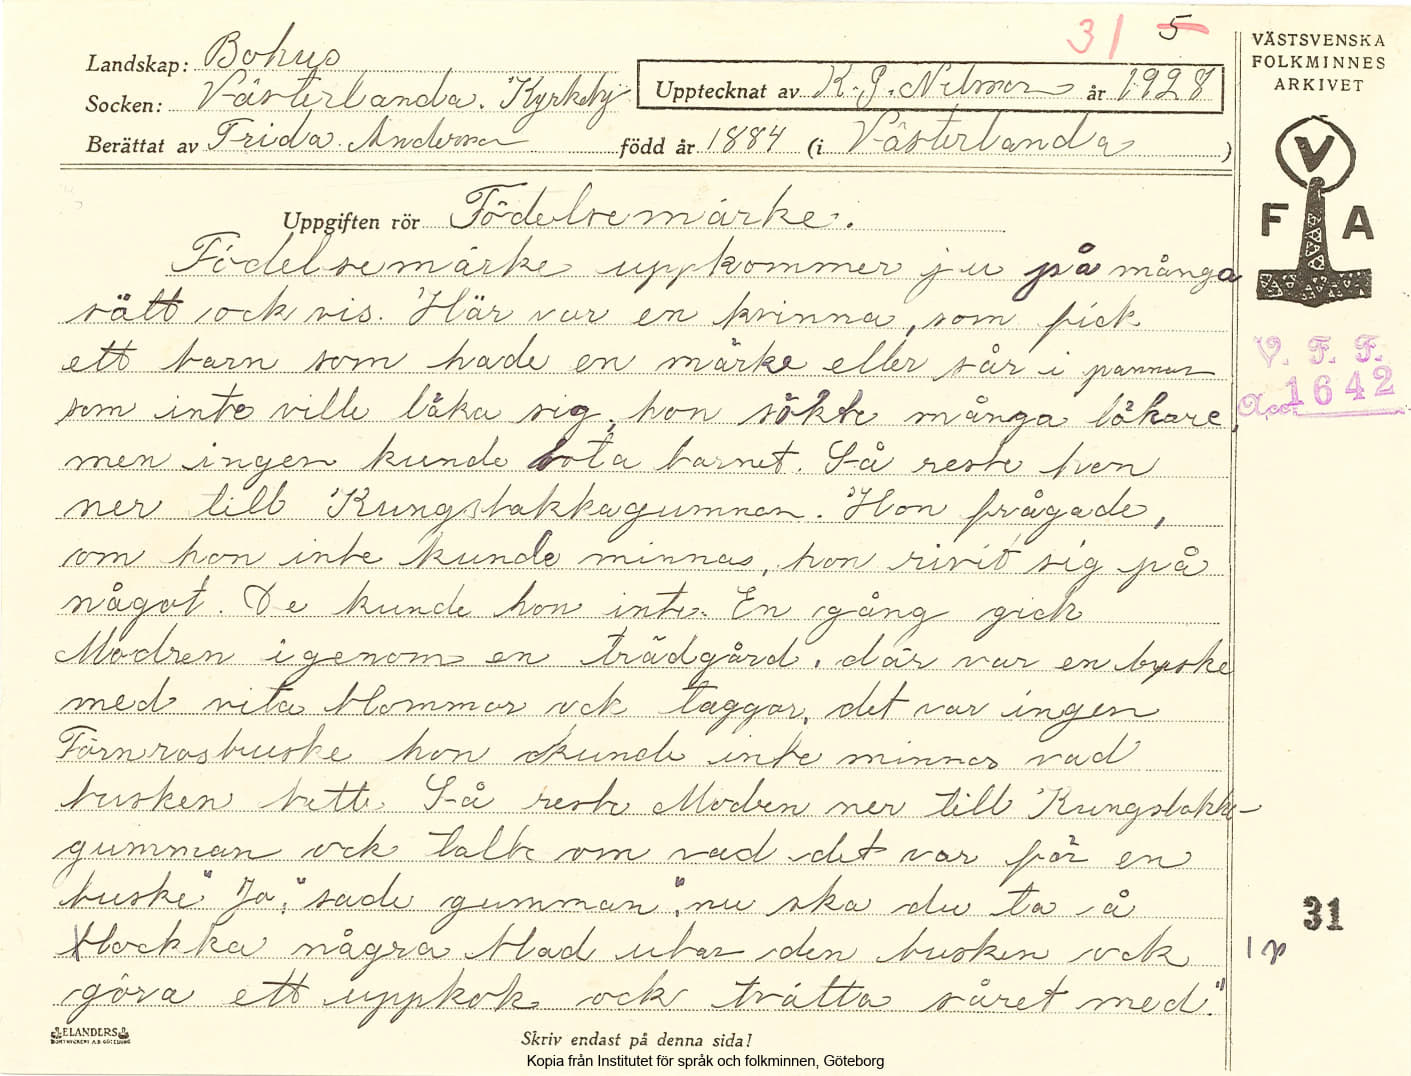 31 5
Landskap: Bohus
Socken: Västerlanda. Kyrkeby
Upptecknat av K. G. Nilsson år 1928
Berättat av Frida Andersson född år 1884 (i Västerlanda)
VÄSTSVENSKA
FOLKMINNES
ARKIVET
V
F A
V. F. F.
Acc. 1642
Uppgiften rör Födelsemärke.
Födelsemärke uppkommer ju på många
sätt ock vis. Här var en kvinna, som fick
ett barn som hade en märke eller sår i pannan
som inte ville läka sig, hon sökte många läkare,
men ingen kunde bota barnet. Så reste hon
ner till Kungsbakkagumman. Hon frågade,
om hon inte kunde minnas, hon rivit sig på
något. De kunde hon inte. En gång gick
Modren igenom en trädgård, där var en buske
med vita blommor ock taggar, det var ingen
Törnrosbuske hon kunde inte minnas vad
busken hette. Så reste Modren ner till Kungsbakke-
gumman ock talte om vad det var för en
buske" Ja," sade gumman", nu ska du ta å
plockka några blad utav den busken ock
göra ett uppkok ock tvätta såret med."
31
1 p
ELANDERS
BOKTRYCKERI A.B. GÖTEBORG
Skriv endast på denna sida!
Kopia från Institutet för språk och folkminnen, Göteborg